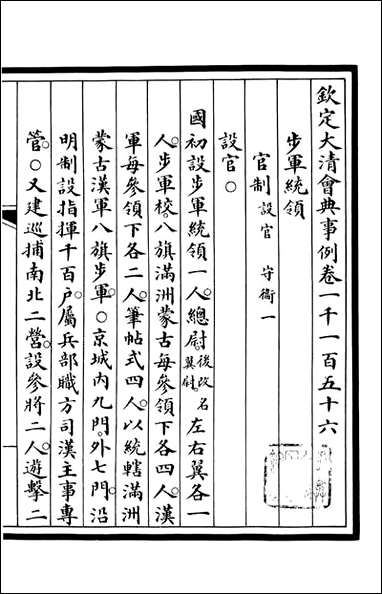 欽定大清會典事例卷一千一百五十六
步軍統領
官制 設官 守衞一
設官○
國初設步軍統領一人。總尉後改名翼尉。左右翼各一
人。步軍校。八旗滿洲蒙古每參領下各四人。漢
軍每參領下各二人。筆帖式四人。以統轄滿洲
蒙古漢軍八旗步軍。○京城內九門。外七門。沿
明制設指揮千百戶。屬兵部職方司漢主事專
管。○又建巡捕南北二營。設參將二人。遊擊二